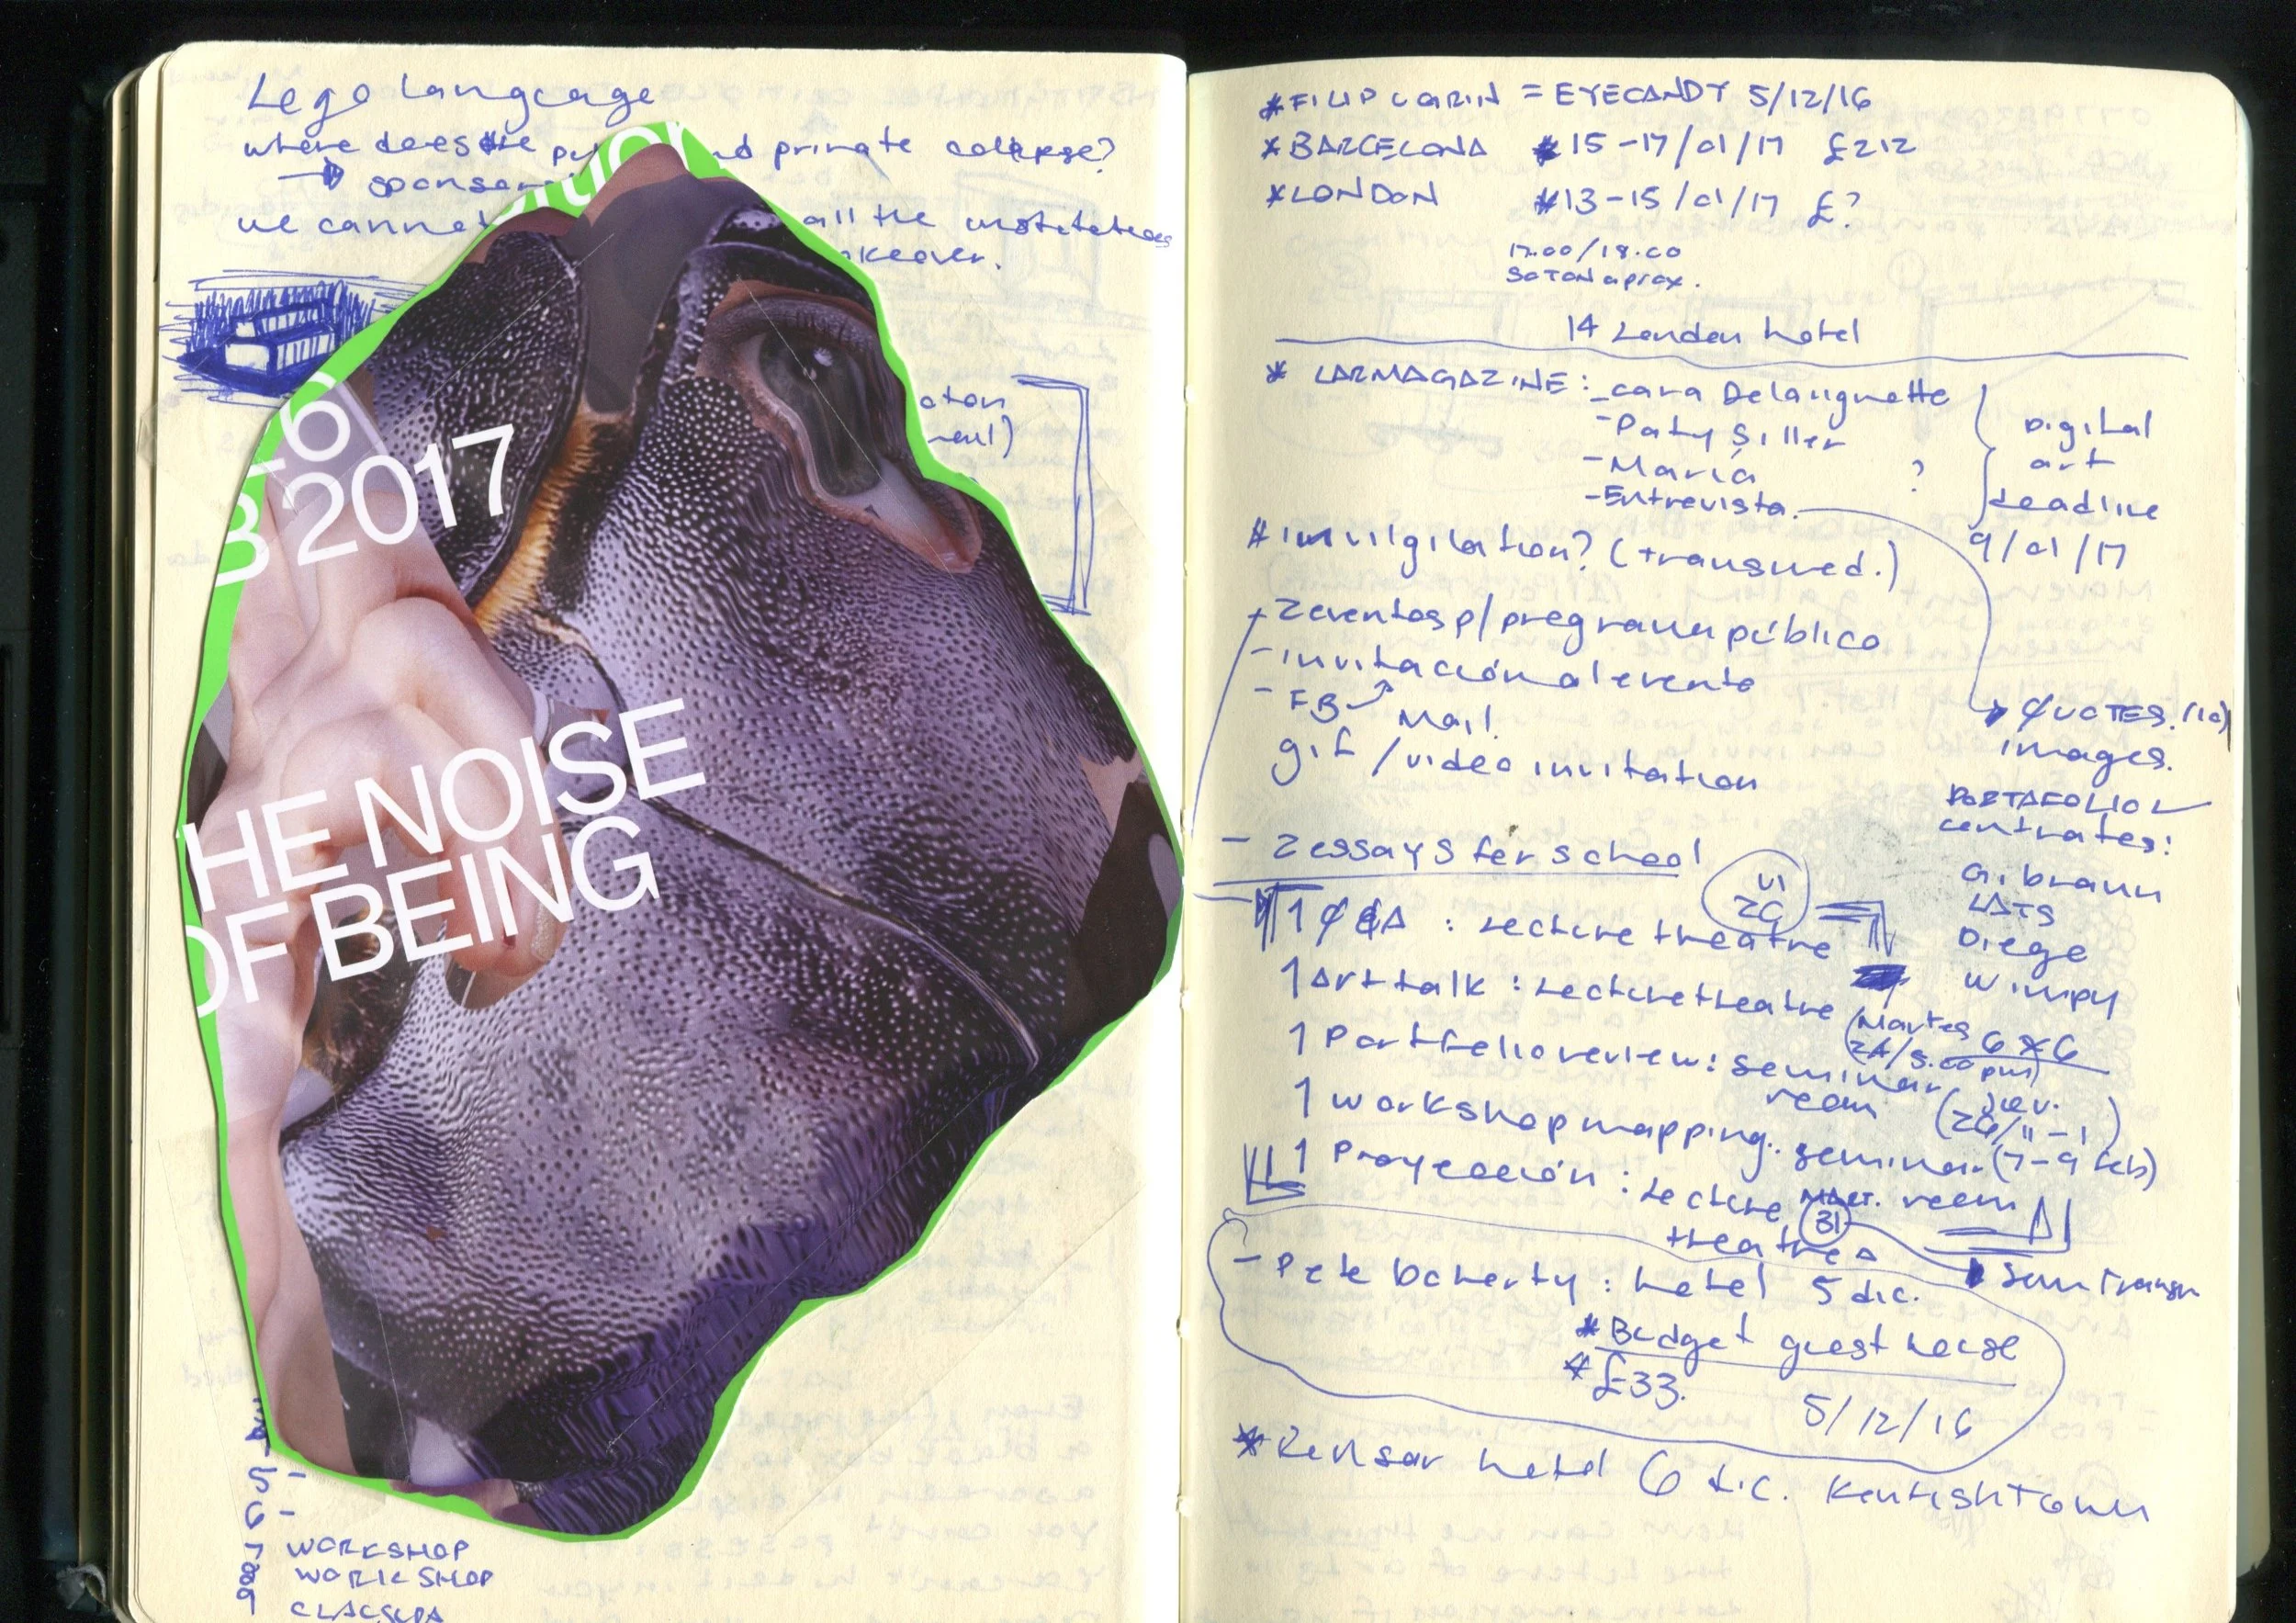 Lego language
where does the pu nd private collapse?
sponsor
we cannot all the institutions
keover.
6
B 2017
THE NOISE
OF BEING
5 -
6 -
7 WORKSHOP
8 WORKSHOP
9 CLAUSURA
* FILIP VARIN = EYECANDY 5/12/16
* BARCELONA * 15-17/01/17 £212
* LONDON * 13-15/01/17 £?
17.00/18.00
SOTON aprox.
14 London hotel
* LARMAGAZINE: - cara Delaugnette
- Paty Siller
- María ?
- Entrevista.
Digital
art
deadline
9/01/17
* invilgilation? (transmed.)
- 2 eventos p/programa público
- invitación al evento
- FB Mail
gif / video invitation
QUOTES. (10)
images.
PORTAFOLIO
contrates:
G. braun
LATS
Diego
Wimpy
6 x 6
- 2 essays for school
VI
20
1 Q&A : Lecture theatre
1 Art talk : Lecture theatre (Martes
24/5.00 pm)
1 Portfolio review: seminar
room (Juev.
26/11-1)
1 workshop mapping: seminar (7-9 feb)
room
1 Proyección : Lecture MART.
theatre 31
Sem Transm
- Pete Doherty : hotel 5 dic.
* Budget guest house
* £33.
5/12/16
* Rensar hotel 6 dic. Kentishtown